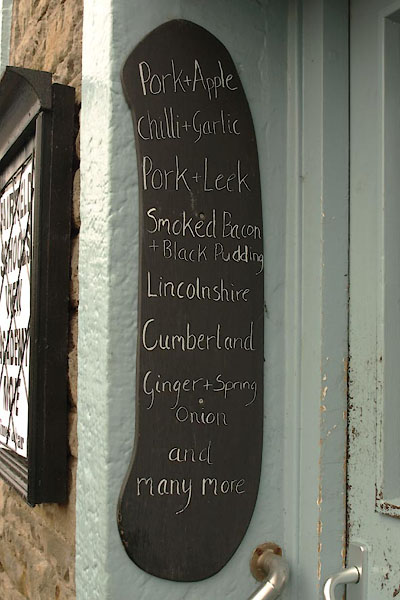 Pork+Apple
Chilli+Garlic
Pork+Leek
Smoked Bacon
+Black Pudding
Lincolnshire
Cumberland
Ginger+Spring
Onion
and
many more